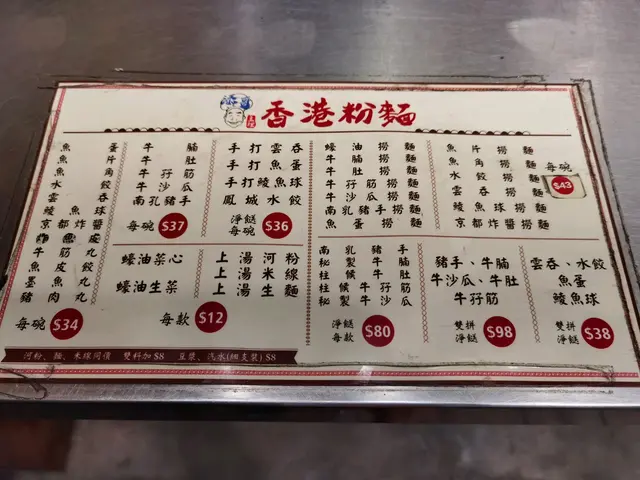 香港粉麵
魚蛋
魚片
魚角
水餃
雲吞
鯪魚球
京都炸醬
丸
牛筋丸
魚皮餃
墨魚丸
豬肉丸
每碗 $34
牛腩
牛肚
牛孖筋
牛沙瓜
南乳豬手
每碗 $37
手打雲吞
手打魚蛋
手打鯪魚球
鳳城水餃
淨餸
每碗 $36
蠔油菜心
蠔油生菜
上湯河粉
上湯米線
上湯生麵
每款 $12
蠔油撈麵
牛腩撈麵
牛肚撈麵
牛孖筋撈麵
牛沙瓜撈麵
南乳豬手撈麵
魚片撈麵
魚角撈麵
水餃撈麵
雲吞撈麵
鯪魚球撈麵
京都炸醬撈麵
每碗
$43
南乳豬手
秘製牛腩
柱候牛肚
柱候牛孖筋
秘製牛沙瓜
淨餸
每款 $80
豬手、牛腩
牛沙瓜、牛肚
牛孖筋
雙拼
淨餸 $98
雲吞、水餃
魚蛋
鯪魚球
雙拼
淨餸 $38
河粉、麵、米線同價 雙料加 $8 豆漿、汽水(細支裝) $8